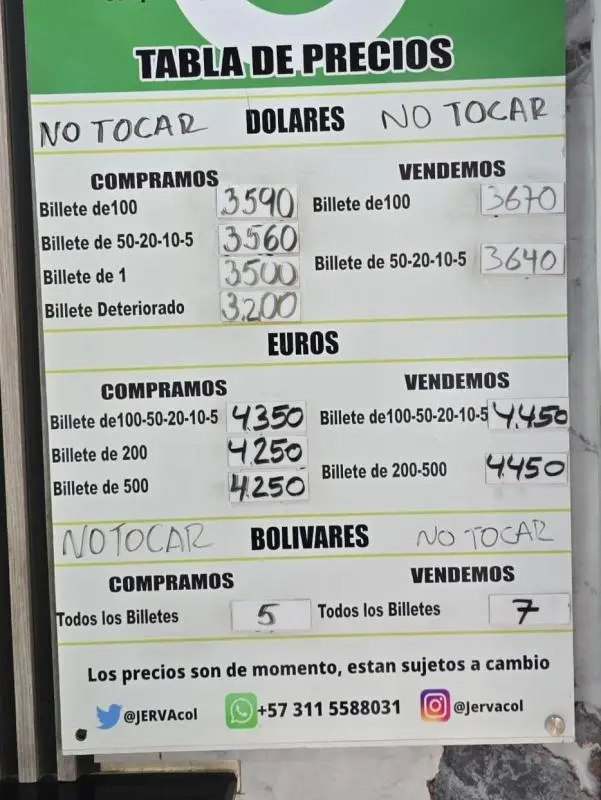 TABLA DE PRECIOS
NO TOCAR DOLARES NO TOCAR
COMPRAMOS VENDEMOS
Billete de100 3590 Billete de100 3670
Billete de 50-20-10-5 3560
Billete de 50-20-10-5 3640
Billete de 1 3500
Billete Deteriorado 3.200
EUROS
COMPRAMOS VENDEMOS
Billete de100-50-20-10-5 4.350 Billete de100-50-20-10-5 4.450
Billete de 200 4.250
Billete de 200-500 4450
Billete de 500 4.250
NO TOCAR BOLIVARES NO TOCAR
COMPRAMOS VENDEMOS
Todos los Billetes 5 Todos los Billetes 7
Los precios son de momento, estan sujetos a cambio
@JERVAcol +57 311 5588031 @Jervacol